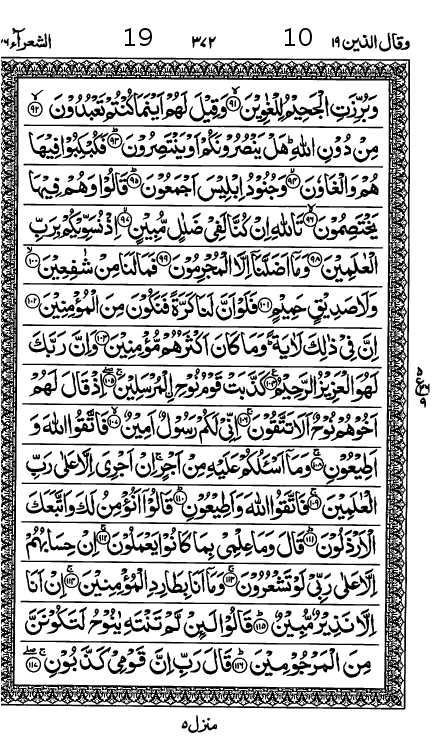 وقال الذين ١٩ 10 ٣٧٢ 19 الشعرآء ٢٦
وَبُرِّزَتِ الْجَحِيْمُ لِلْغٰوِيْنَ ۙ﴿٩١﴾ وَقِيْلَ لَهُمْ اَيْنَمَا كُنْتُمْ تَعْبُدُوْنَ ۙ﴿٩٢﴾
مِنْ دُوْنِ اللّٰهِ ؕ هَلْ يَنْصُرُوْنَكُمْ اَوْ يَنْتَصِرُوْنَ ؕ﴿٩٣﴾ فَكُبْكِبُوْا فِيْهَا
هُمْ وَالْغَاوٗنَ ۙ﴿٩٤﴾ وَجُنُوْدُ اِبْلِيْسَ اَجْمَعُوْنَ ؕ﴿٩٥﴾ قَالُوْا وَهُمْ فِيْهَا
يَخْتَصِمُوْنَ ۙ﴿٩٦﴾ تَاللّٰهِ اِنْ كُنَّا لَفِيْ ضَلٰلٍ مُّبِيْنٍ ۙ﴿٩٧﴾ اِذْ نُسَوِّيْكُمْ بِرَبِّ
الْعٰلَمِيْنَ ﴿٩٨﴾ وَمَاۤ اَضَلَّنَاۤ اِلَّا الْمُجْرِمُوْنَ ﴿٩٩﴾ فَمَا لَنَا مِنْ شٰفِعِيْنَ ۙ﴿١٠٠﴾
وَلَا صَدِيْقٍ حَمِيْمٍ ﴿١٠١﴾ فَلَوْ اَنَّ لَنَا كَرَّةً فَنَكُوْنَ مِنَ الْمُؤْمِنِيْنَ ﴿١٠٢﴾
اِنَّ فِيْ ذٰلِكَ لَاٰيَةً ؕ وَمَا كَانَ اَكْثَرُهُمْ مُّؤْمِنِيْنَ ﴿١٠٣﴾ وَاِنَّ رَبَّكَ
لَهُوَ الْعَزِيْزُ الرَّحِيْمُ ﴿١٠٤﴾ كَذَّبَتْ قَوْمُ نُوْحِ ِۨالْمُرْسَلِيْنَ ۚۖ﴿١٠٥﴾ اِذْ قَالَ لَهُمْ
اَخُوْهُمْ نُوْحٌ اَلَا تَتَّقُوْنَ ۚ﴿١٠٦﴾ اِنِّيْ لَكُمْ رَسُوْلٌ اَمِيْنٌ ۙ﴿١٠٧﴾ فَاتَّقُوا اللّٰهَ وَ
اَطِيْعُوْنِ ۚ﴿١٠٨﴾ وَمَاۤ اَسْـَٔلُكُمْ عَلَيْهِ مِنْ اَجْرٍ ۚ اِنْ اَجْرِيَ اِلَّا عَلٰى رَبِّ
الْعٰلَمِيْنَ ۚ﴿١٠٩﴾ فَاتَّقُوا اللّٰهَ وَاَطِيْعُوْنِ ؕ﴿١١٠﴾ قَالُوْۤا اَنُؤْمِنُ لَكَ وَاتَّبَعَكَ
الْاَرْذَلُوْنَ ؕ﴿١١١﴾ قَالَ وَمَا عِلْمِيْ بِمَا كَانُوْا يَعْمَلُوْنَ ۚ﴿١١٢﴾ اِنْ حِسَابُهُمْ
اِلَّا عَلٰى رَبِّيْ لَوْ تَشْعُرُوْنَ ۚ﴿١١٣﴾ وَمَاۤ اَنَا بِطَارِدِ الْمُؤْمِنِيْنَ ۚ﴿١١٤﴾ اِنْ اَنَا
اِلَّا نَذِيْرٌ مُّبِيْنٌ ؕ﴿١١٥﴾ قَالُوْا لَىِٕنْ لَّمْ تَنْتَهِ يٰنُوْحُ لَتَكُوْنَنَّ
مِنَ الْمَرْجُوْمِيْنَ ؕ﴿١١٦﴾ قَالَ رَبِّ اِنَّ قَوْمِيْ كَذَّبُوْنِ ۚۖ﴿١١٧﴾
منزل ٥